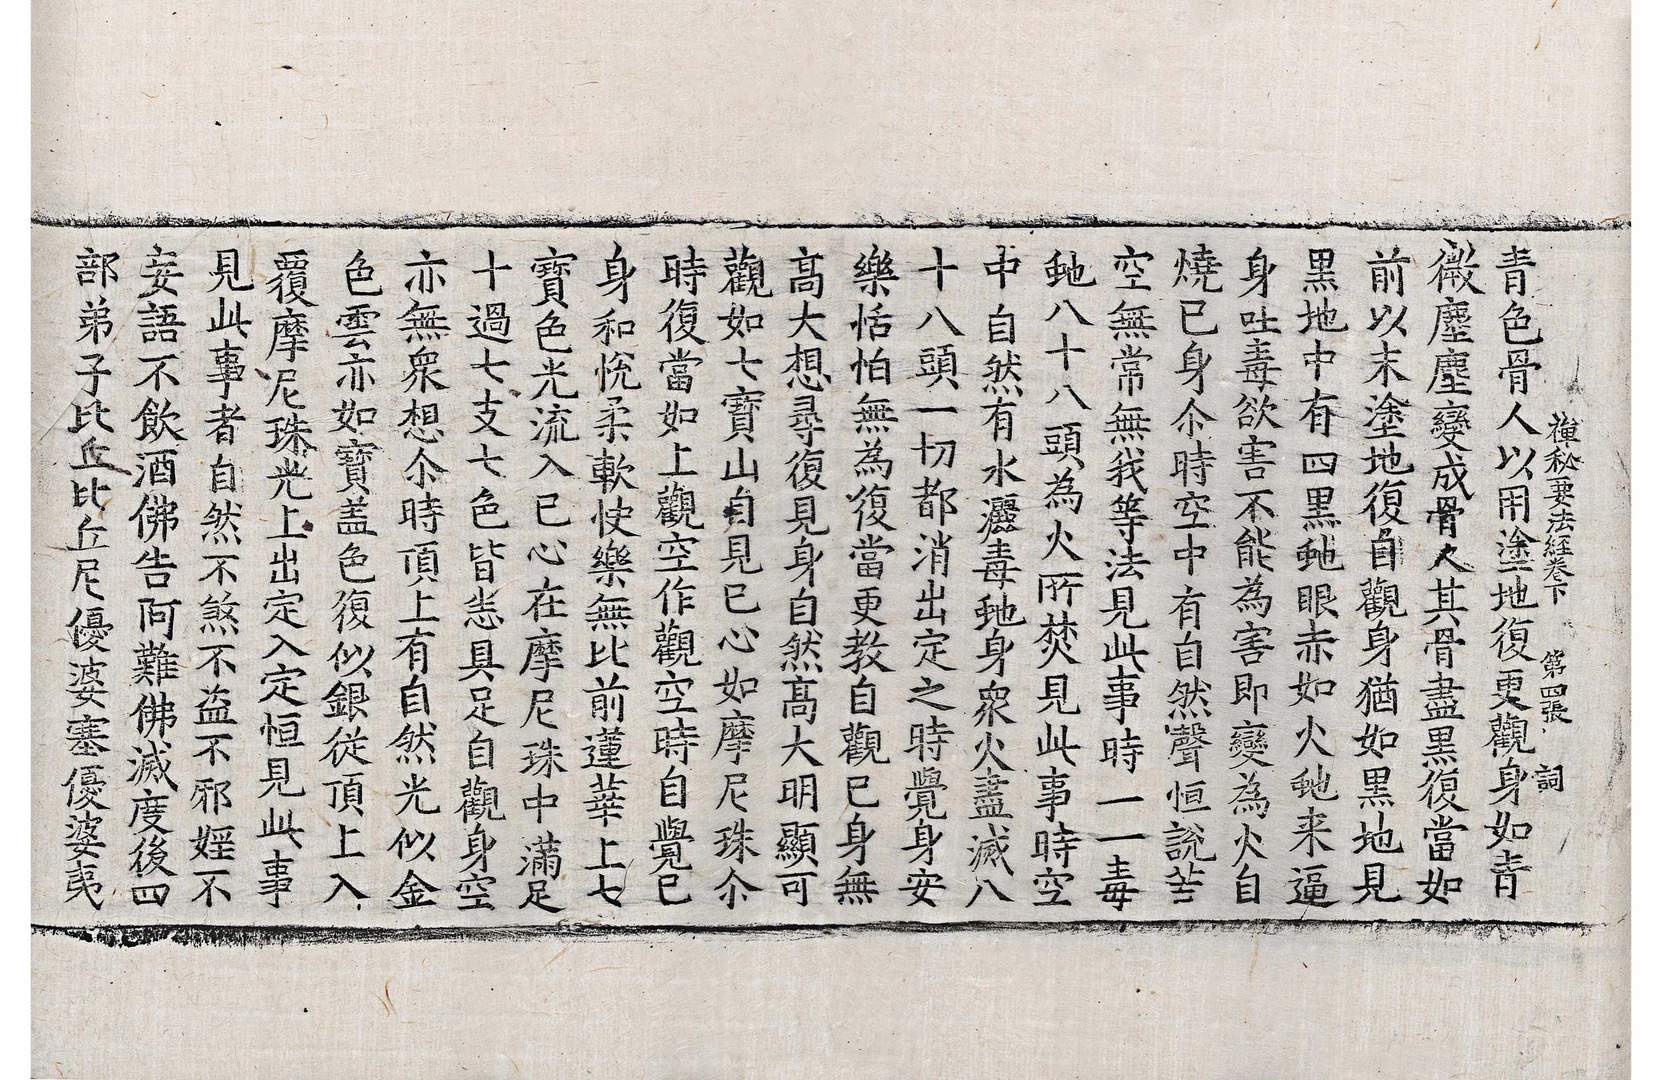 禪秘要法經卷下 第四張 詞
青色骨人以用塗地復更觀身如青
微塵塵變成骨人其骨盡黑復當如
前以末塗地復自觀身猶如黑地見
黑地中有四黑虵眼赤如火虵来逼
身吐毒欲害不能為害即變為火自
燒已身尒時空中有自然聲恒說苦
空無常無我等法見此事時一一毒
虵八十八頭為火所焚見此事時空
中自然有水灑毒虵身衆火盡滅八
十八頭一切都消出定之時覺身安
樂恬怕無為復當更教自觀已身無
髙大想尋復見身自然髙大明顯可
觀如七寶山自見已心如摩尼珠尒
時復當如上觀空作觀空時自覺已
身和恱柔軟快樂無比前蓮華上七
寶色光流入已心在摩尼珠中滿足
十過七支七色皆悉具足自觀身空
亦無衆想尒時頂上有自然光似金
色雲亦如寶盖色復似銀從頂上入
覆摩尼珠光上出定入定恒見此事
見此事者自然不煞不盗不邪婬不
妄語不飲酒佛告阿難佛滅度後四
部弟子比丘比丘尼優婆塞優婆夷